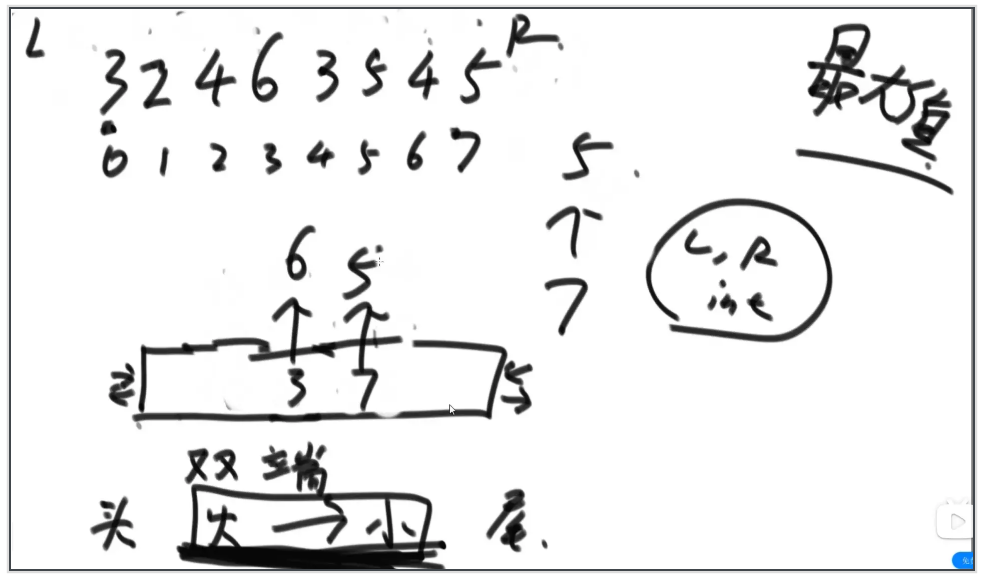 L 3 2 4 6 3 5 4 5 R
0 1 2 3 4 5 6 7
最大值
5
↑
7
L, R
int
6 5
↑ ↑
3 7
双端
头 大 → 小 尾